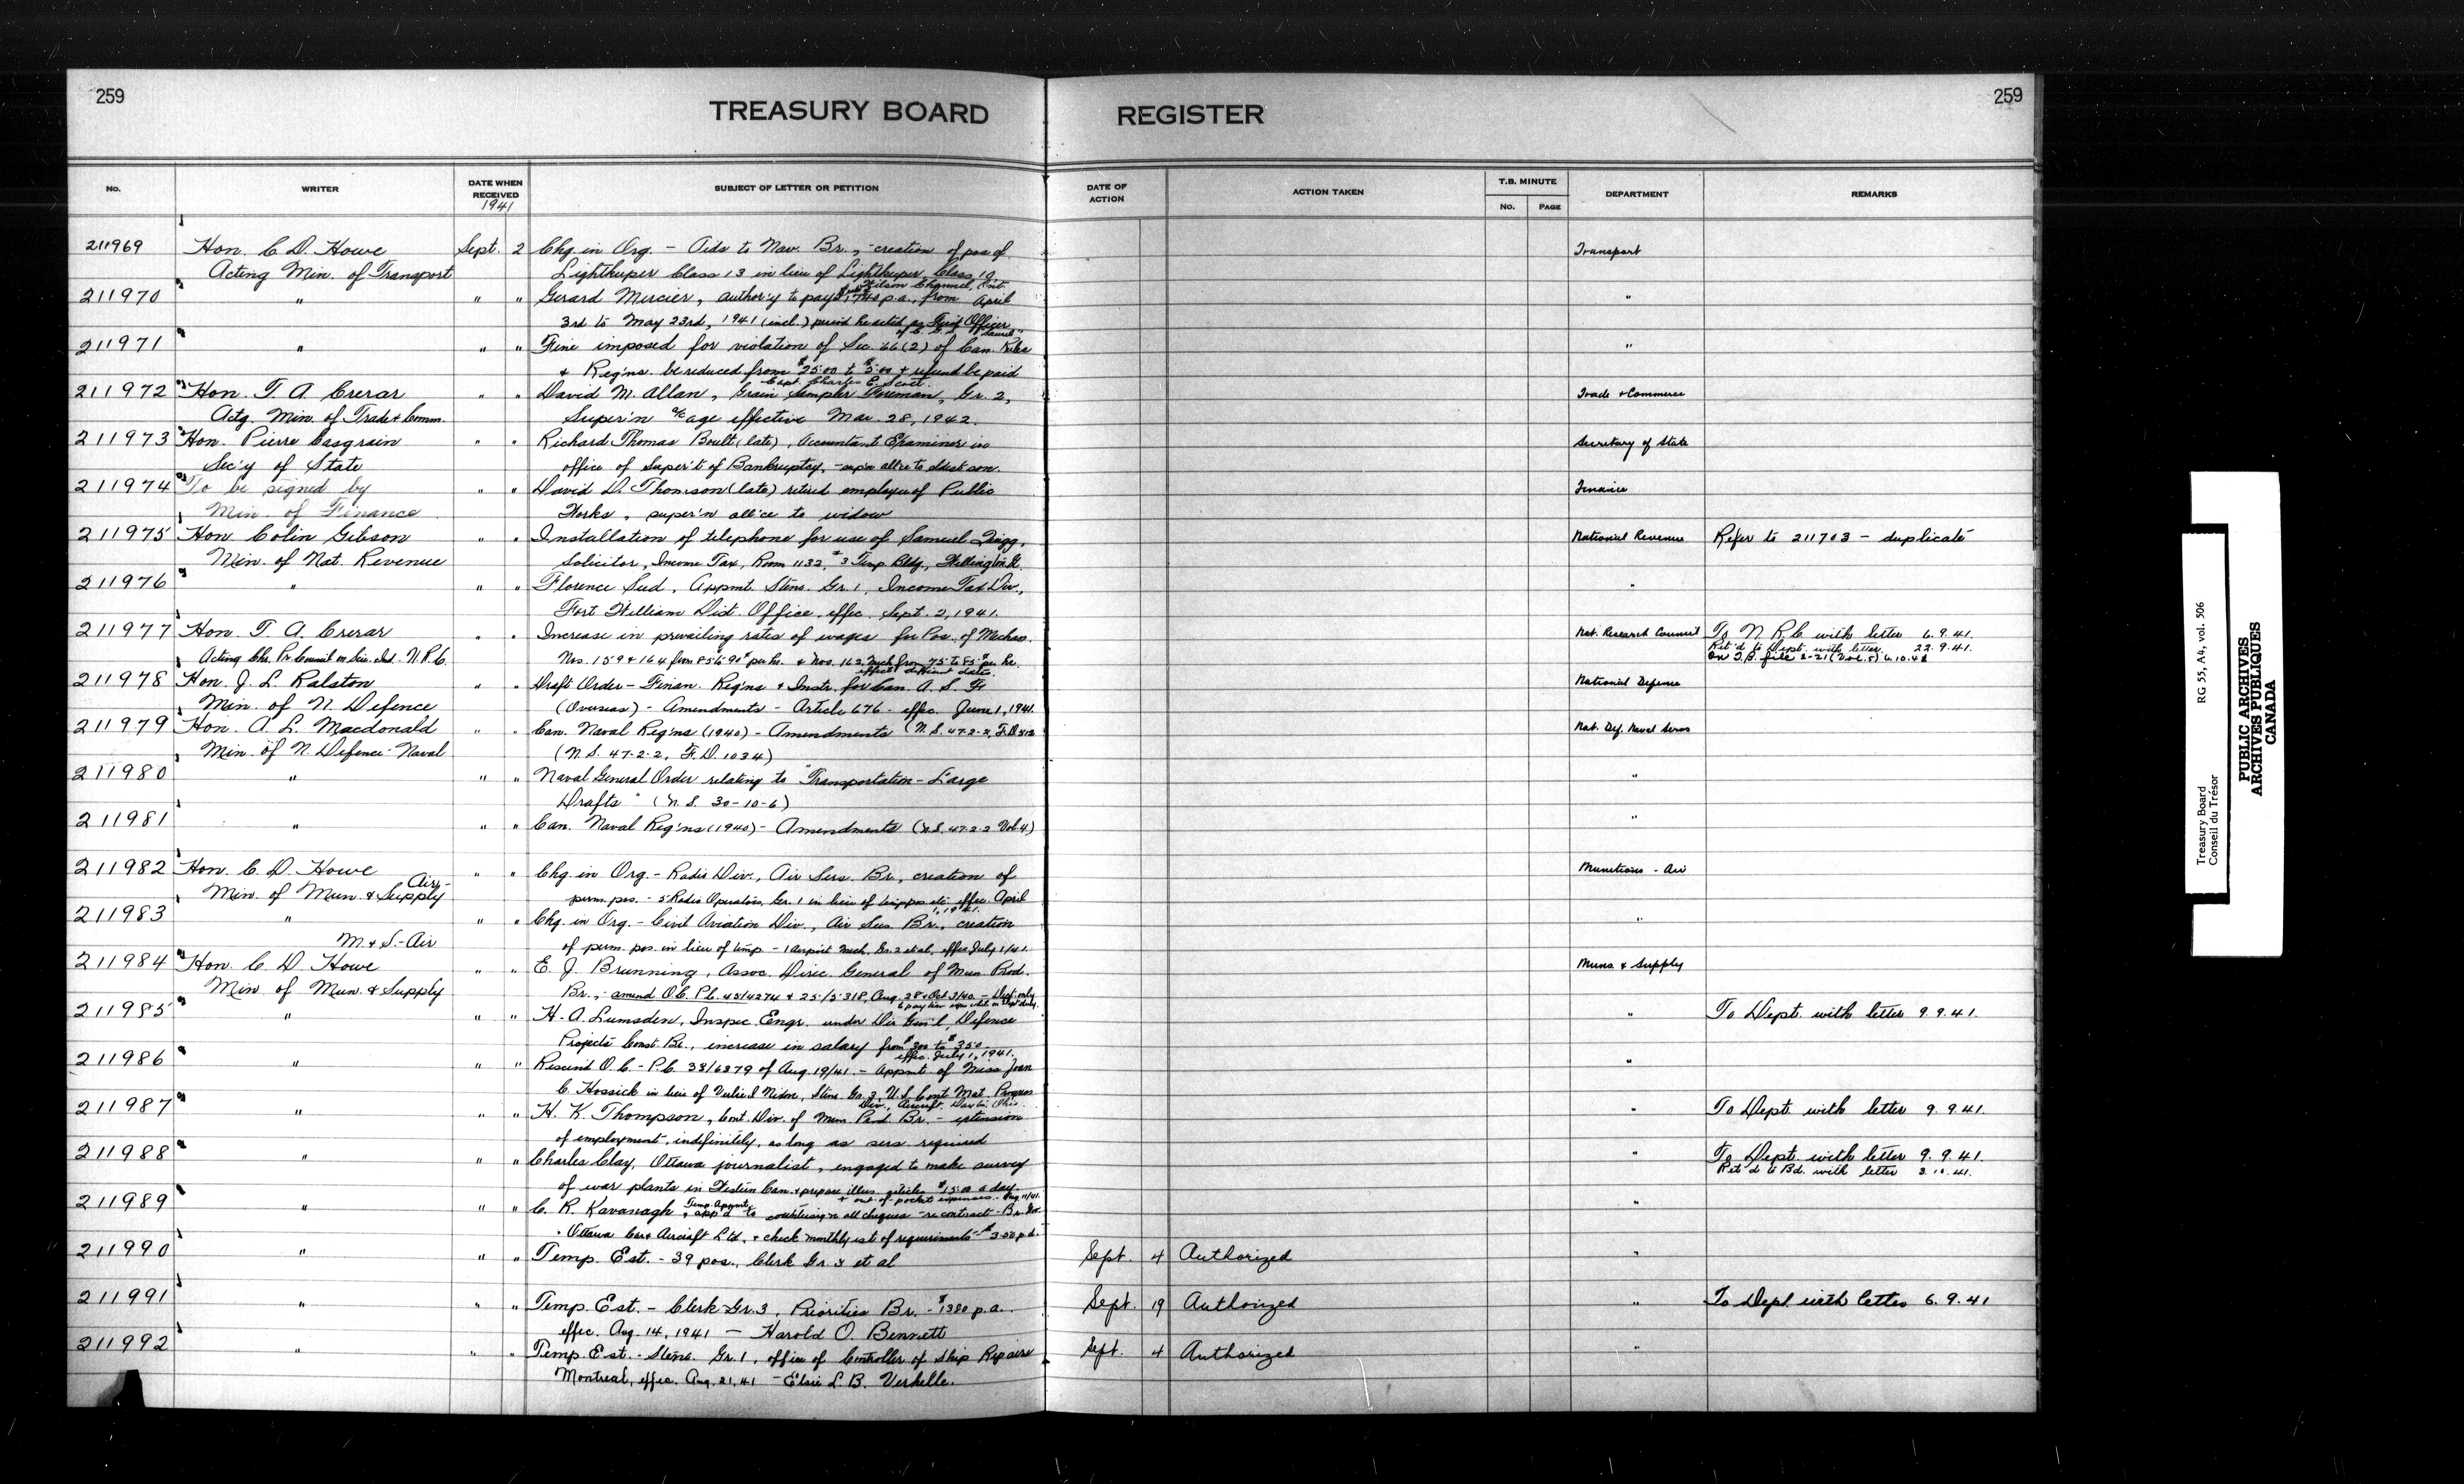 259
259
TREASURY BOARD REGISTER
No. WRITER DATE WHEN RECEIVED SUBJECT OF LETTER OR PETITION DATE OF ACTION ACTION TAKEN T.B. MINUTE No. PAGE DEPARTMENT REMARKS
1941
211969 Hon. C. D. Howe Sept. 2 Chg. in Org. - Aids to Nav. Br., - creation of pos of Transport
Acting Min. of Transport Lightkeeper Class 13 in lieu of Lightkeeper, Class 10,
Wilson Channel, Ont.
211970 " " " Gerard Mercier, author'y to pay p.a., from April "
3rd to May 23rd, 1941 (incl.) period he acted as First Officer
of C. G. S. Laurel"
211971 " " " Fine imposed for violation of Sec. 66(2) of Can. Rules "
& Reg'ns. be reduced from $25.00 to $5.00 & refund be paid
Capt. Charles E. Scott.
211972 Hon. T. A. Crerar " " David M. Allan, Grain Sampler Foreman, Gr. 2, Trade & Commerce
Actg. Min. of Trade & Comm. Super'n a/c age effective Mar. 28, 1942.
211973 Hon. Pierre Casgrain " " Richard Thomas Boult (late), Accountant Examiner in Secretary of State
Sec'y of State office of Super't of Bankruptcy, - sup'n all'ce to eldest son.
211974 To be signed by " " David D. Thomson (late) retired employee of Public Finance
Min. of Finance Works, super'n all'ce to widow
211975 Hon Colin Gibson " " Installation of telephone for use of Samuel National Revenue Refer to 211703 - duplicate
Min. of Nat. Revenue Solicitor, Income Tax, Room 1132, #3 Temp. Bldg., Wellington St.
211976 " " " Florence Sud, Appmt. Steno. Gr. 1, Income Tax Div., "
Fort William Dist. Office, effec. Sept. 2, 1941.
211977 Hon. T. A. Crerar " " Increase in prevailing rates of wages for Pos. of Mechan. Nat. Research Council To N.R.C. with letter 6.9.41.
Acting Chr. Pr. Council on Scien. Ind. N.R.C. Nos. 159 & 164 from 85 to 90¢ per hr. & Nos. 162 Mech from 75 to 85¢ per hr. Ret'd to Dept. with letter 22.9.41.
effect different dates. On T.B. file 2-21 (Vol. 5) 6.10.41
211978 Hon. J. L. Ralston " " Draft Order - Finan. Reg'ns & Instr. for Can. A. S. F. National Defence
Min. of N. Defence (Overseas) - Amendments - Article 676 - effec. June 1, 1941.
211979 Hon. A. L. Macdonald " " Can. Naval Reg'ns (1940) - Amendments (N.S. 47-2-2, F.D. 812 Nat. Def. Naval Servs
Min. of N. Defence - Naval (N.S. 47-2-2, F.D. 1034)
211980 " " " Naval General Order relating to "Transportation - Large "
Drafts" (N.S. 30-10-6)
211981 " " " Can. Naval Reg'ns (1940) - Amendments (N.S. 47-2-2 Vol. 4) "
211982 Hon. C. D. Howe " " Chg. in Org. - Radio Div., Air Serv. Br., creation of Munitions - Air
Min. of Mun. & Supply Air - perm. pos. - 5 Radio Operators, Gr. 1 in lieu of temp pos etc. effec. April
1, 1941.
211983 " " " Chg. in Org. - Civil Aviation Div., Air Ser. Br., creation "
M. & S. - Air of perm. pos. in lieu of temp - 1 Airport Mech. Gr. 2 et al, effec July 1/41.
211984 Hon. C. D. Howe " " E. J. Brunning, Assoc. Direc. General of Mun. Prod. Muns. & Supply
Min. of Mun. & Supply Br., - amend O.C. P.C. 45/4274 & 25/5318, Aug. 28 & Oct 3/40 - Dept. only
to pay trav expen when on Dept duty.
211985 " " " H. A. Lumsden, Inspec. Engr. under Dir Gen'l, Defence " To Dept. with letter 9.9.41.
Projects Const. Br., increase in salary from $300 to $350
effec. July 1, 1941.
211986 " " " Rescind O.C. - P.C. 38/6379 of Aug. 19/41. - Appmt. of Miss Joan "
C. Hossick in lieu of Nixon, Steno. Gr. 3, U.S. Cont. Mat. Progress
Div., Aircraft, Dayton Ohio.
211987 " " " H. K. Thompson, Cont. Div. of Mun. Prod. Br. - extension " To Dept. with letter 9.9.41.
of employment, indefinitely, as long as serv. required
211988 " " " Charles Clay, Ottawa journalist, engaged to make survey " To Dept. with letter 9.9.41.
of war plants in Western Can. & prepare illus. articles $15.00 a day Ret'd to Bd. with letter 3.10.41.
& out-of-pocket expenses - Aug. 11/41.
211989 " " " C. R. Kavanagh, Temp. Appmt, app'd to countersign all cheques re contract - Br. Gov. "
Ottawa Car & Aircraft Ltd., & check monthly est of requirements - $3.50 p.d.
211990 " " " Temp. Est. - 39 pos., Clerk Gr. 3 et al Sept. 4 Authorized "
211991 " " " Temp. Est. - Clerk Gr. 3, Priorities Br. - $1380 p.a. Sept. 19 Authorized " To Dept. with letter 6.9.41
effec. Aug. 14, 1941 - Harold O. Bennett
211992 " " " Temp. Est. - Steno. Gr. 1, office of Controller of Ship Repairs Sept. 4 Authorized "
Montreal, effec. Aug. 21, 41 - Elsie L. B. Verhelle.
Treasury Board RG 55, A4, vol. 506
Conseil du Trésor
PUBLIC ARCHIVES
ARCHIVES PUBLIQUES
CANADA